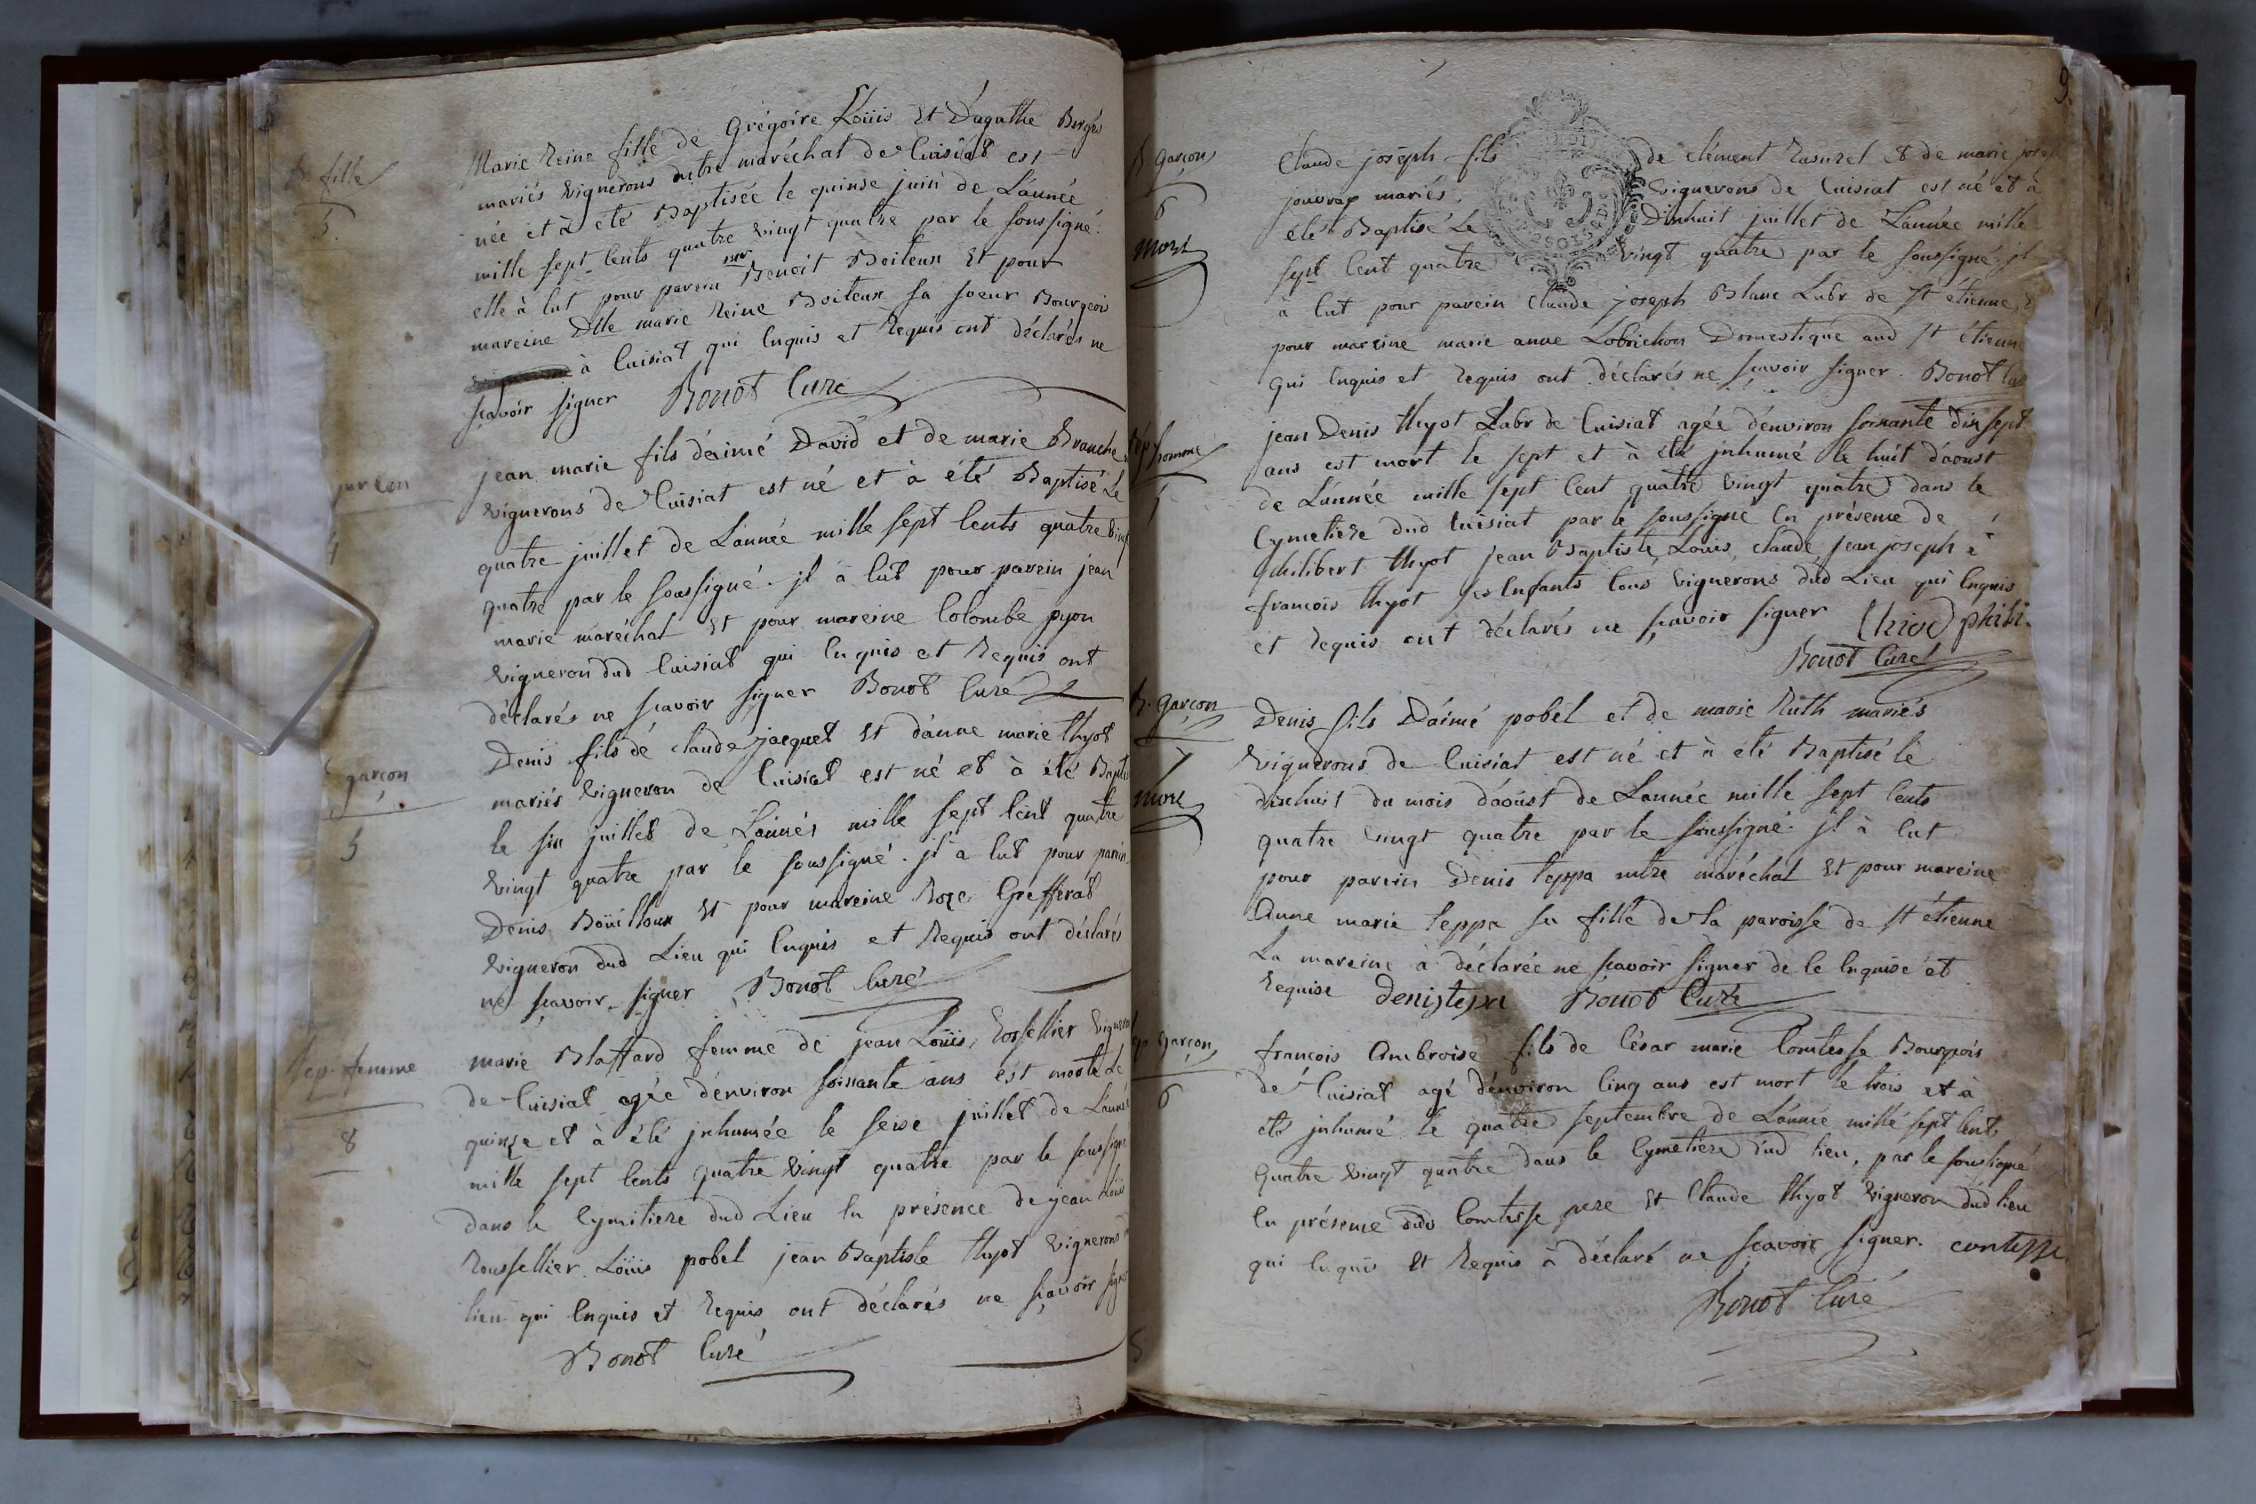 B. fille
5.
Marie Reine fille de Grégoire Loüis et d'agathe Borges
mariés vignerons dutre maréchal de Cuisiat est
née et à eté Baptisée le quinse juin de L'année
mille sept Cents quatre vingt quatre par le soussigné.
elle à Eut pour parein mr Benoit Boiteux Et pour
mareine Dlle marie Reine Boiteux sa soeur Bourgeois
à Cuisiat qui Enquis et Requis ont déclarés ne
sçavoir signer Bonot Curé
garçon
4
jean marie fils d'aimé David et de marie Branche
vignerons de Cuisiat est né et à été Baptisé Le
quatre juillet de L'année mille sept Cents quatre vingt
quatre par le soussigné. jl à Eut pour parein jean
marie maréchal Et pour mareine Colombe pyon
vigneron dud Cuisiat qui Enquis et Requis ont
déclarés ne sçavoir signer Bonot Curé
garçon
5
Denis fils de claude jacquet Et d'anne marie thyot
mariés vigneron de Cuisiat est né et à été Bapti
le six juillet de L'année mille sept Cent quatre
vingt quatre par le soussigné. jl a Eut pour parein
Denis Boüilloux Et pour mareine Roze Grefferat
vigneron dud Lieu qui Enquis et Requis ont déclarés
ne sçavoir signer Bonot Curé
Sep. femme
8
marie Blaffard femme de jean Loüis Rossellier vigneron
de Cuisiat agée d'environ soissante ans est morte Le
quinze et à été jnhumée le seise juillet de L'année
mille sept Cents quatre vingt quatre par le soussigné
dans le Cymitiere dud Lieu En présence de jean Loüis
Roussellier Loüis pobel jean Baptiste thyot vignerons
lieu qui Enquis et Requis ont déclarés ne sçavoir signer
Bonot Curé
9
B garçon
6
mort
Claude joseph fils de clément Rasurel et de marie josep
jouvray mariés vignerons de Cuisiat est né et à
été Baptisé Le Dixhuit juillet de L'année mille
sept Cent quatre vingt quatre par le soussigné. jl
à Eut pour parein claude joseph Blanc Labr de st etienne, Et
pour mareine marie anne Lobrichon Domestique aud st étienne
qui Enquis et Requis ont déclarés ne sçavoir signer. Bonot Cur
sép homme
1
jean Denis thyot Labr de Cuisiat agée d'environ soisante dix sept
ans est mort le sept et à été jnhumé le huit d'aoust
de L'année mille sept Cent quatre vingt quatre dans le
Cymetiere dud Cuisiat par le soussigné En présence de
philibert thyot jean Baptiste, Louis, claude, jean joseph et
francois thyot ses Enfants tous vignerons dud Lieu qui Enquis
et Requis ont déclarés ne sçavoir signer phili.
Bonot Curé
B. garçon
7
mort
Denis fils D'aimé pobel et de marie Ruth mariés
vignerons de Cuisiat est né et à été Baptisé le
dixhuit du mois d'aoust de L'année mille sept Cents
quatre vingt quatre par le soussigné. jl à Eut
pour parein Denis teppa mtre maréchal Et pour mareine
Anne marie teppa sa fille de la paroisse de st étienne
La mareine à déclarée ne sçavoir signer de le Enquise et
Requise denistepa Bonot Curé
sep garçon
6
francois Ambroise fils de César marie Comtesse Bourgois
de Cuisiat agé d'environ Cinq ans est mort le trois et à
eté jnhumé le quatre septembre de L'année mille sept Cents
quatre vingt quatre dans le Cymetiere dud lieu, par le soussigné
En présence dud Comtesse pere Et Claude thyot vigneron dud lieu
qui Enquis Et Requis à déclaré ne sçavoir signer. contesse
Bonot Curé